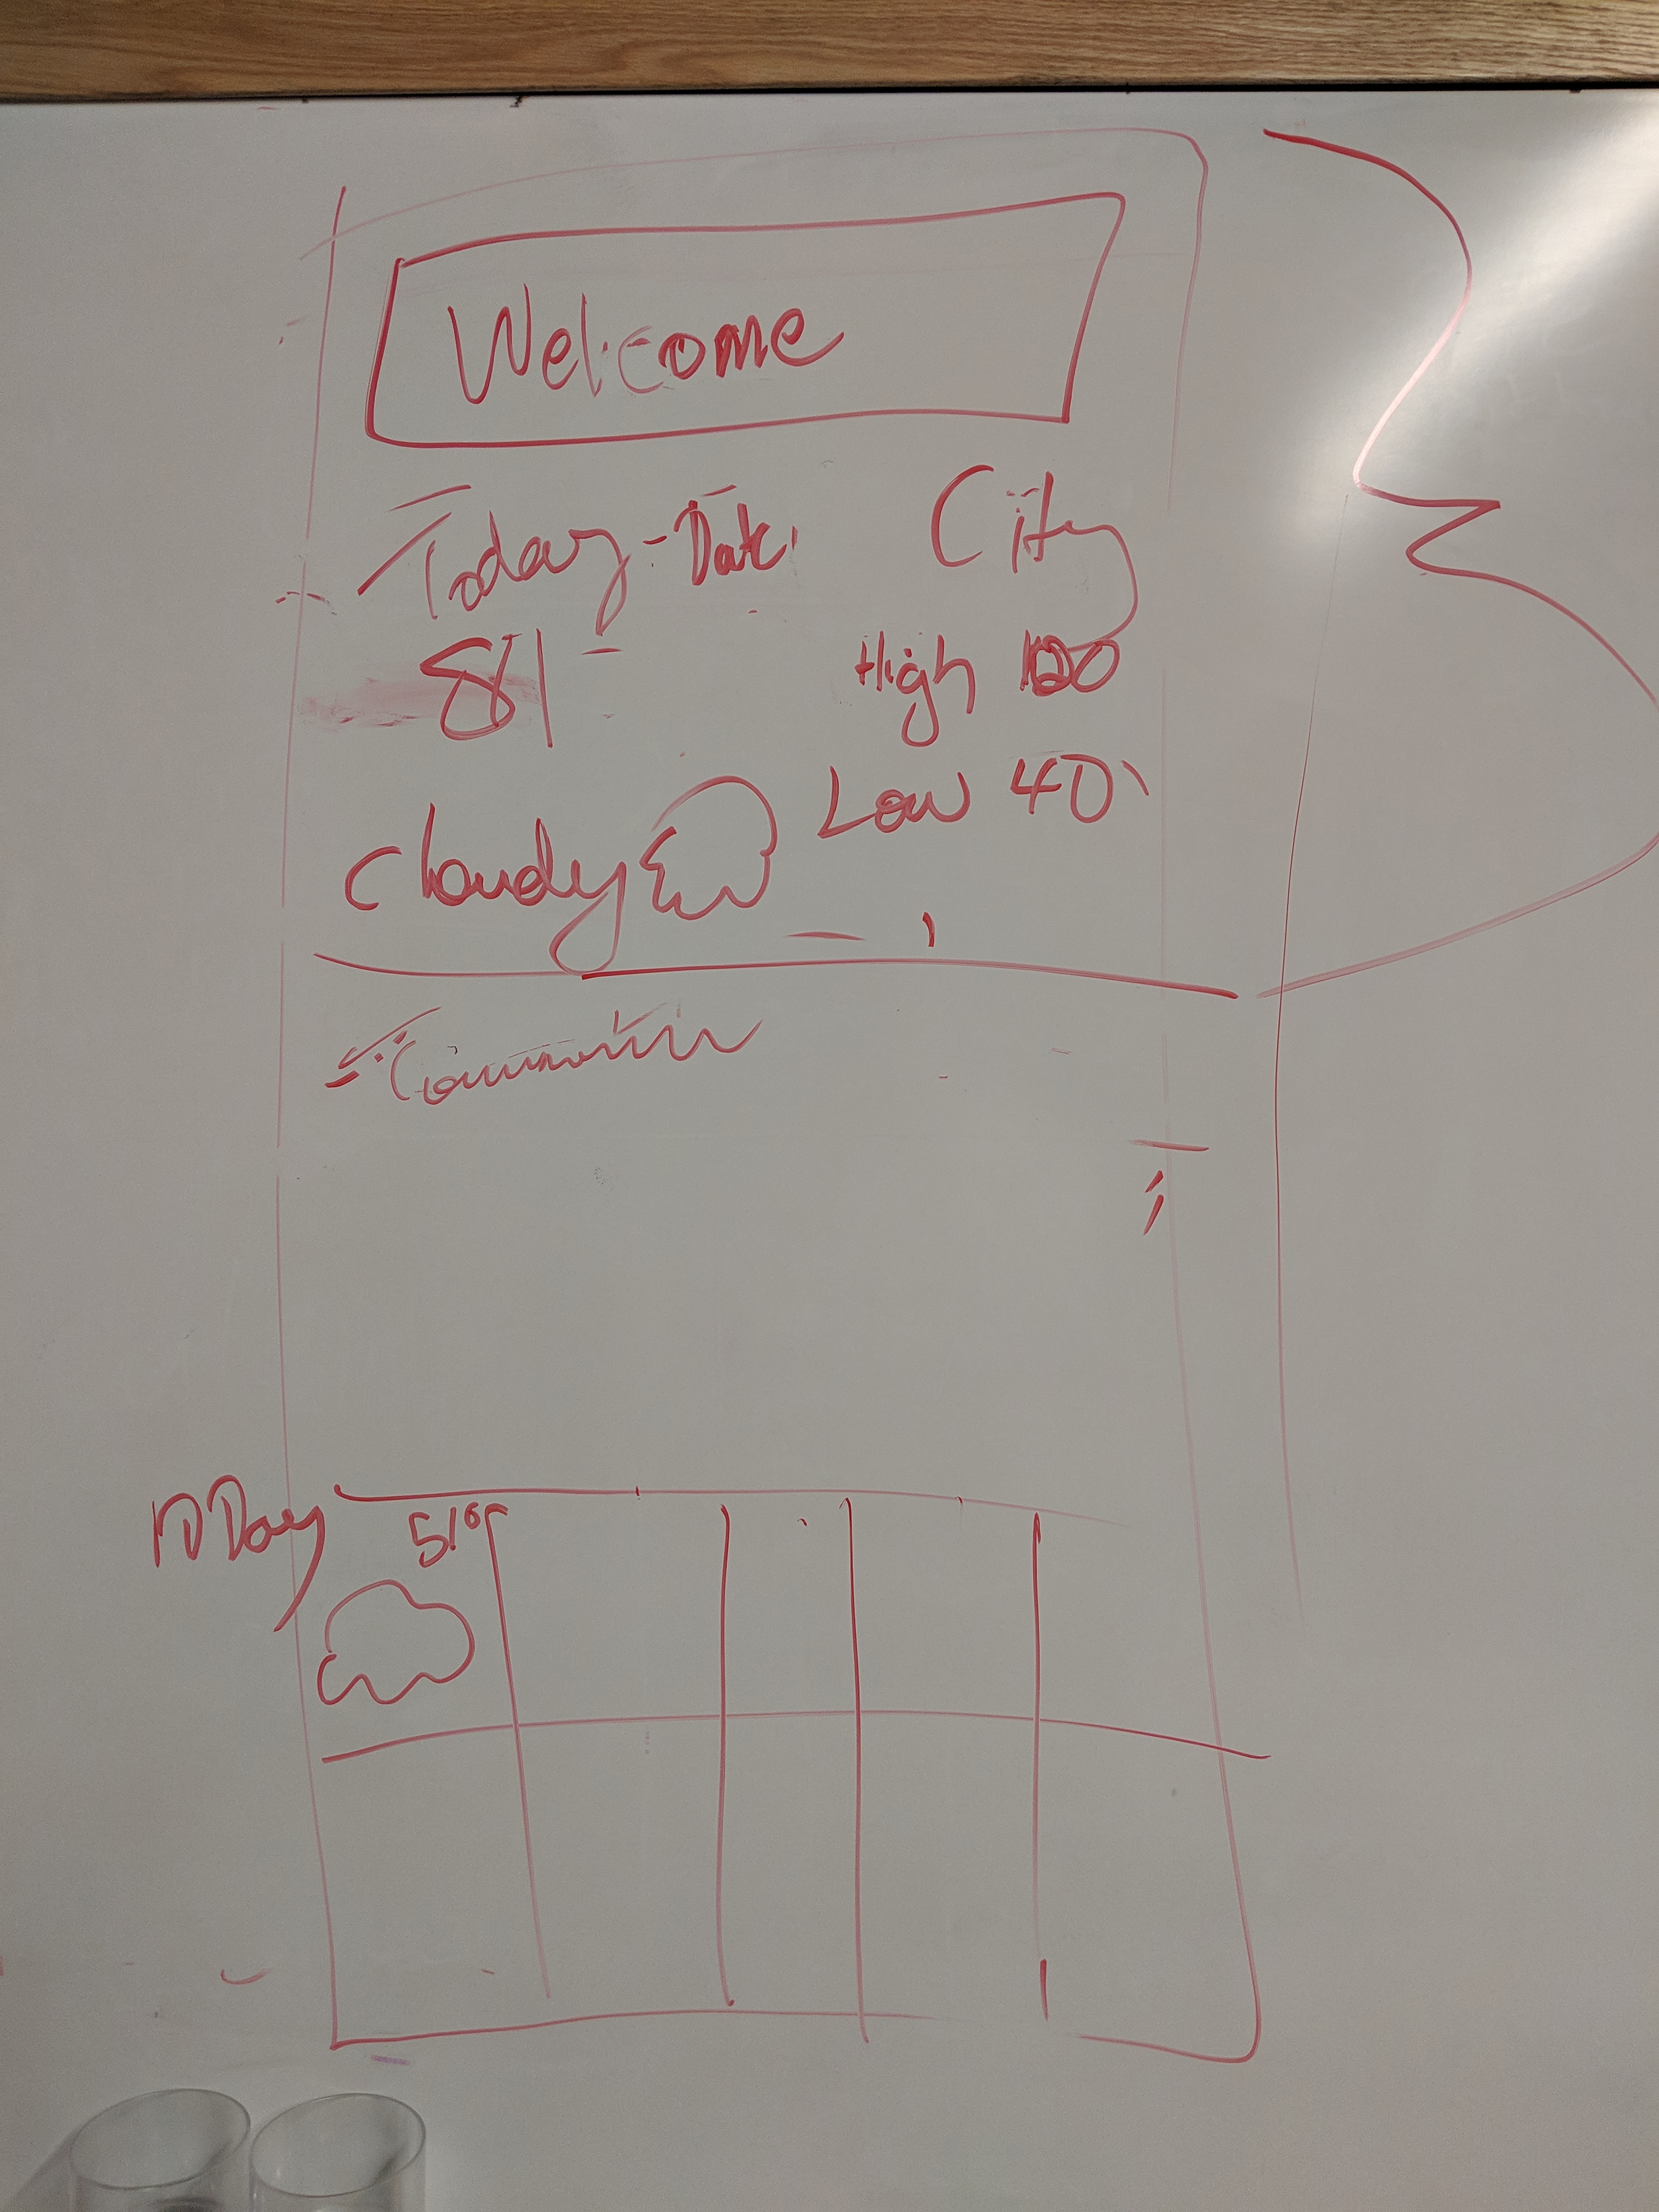 Welcome
Today - Date City
81 High 120
cloudy Low 40
10 Day 51°